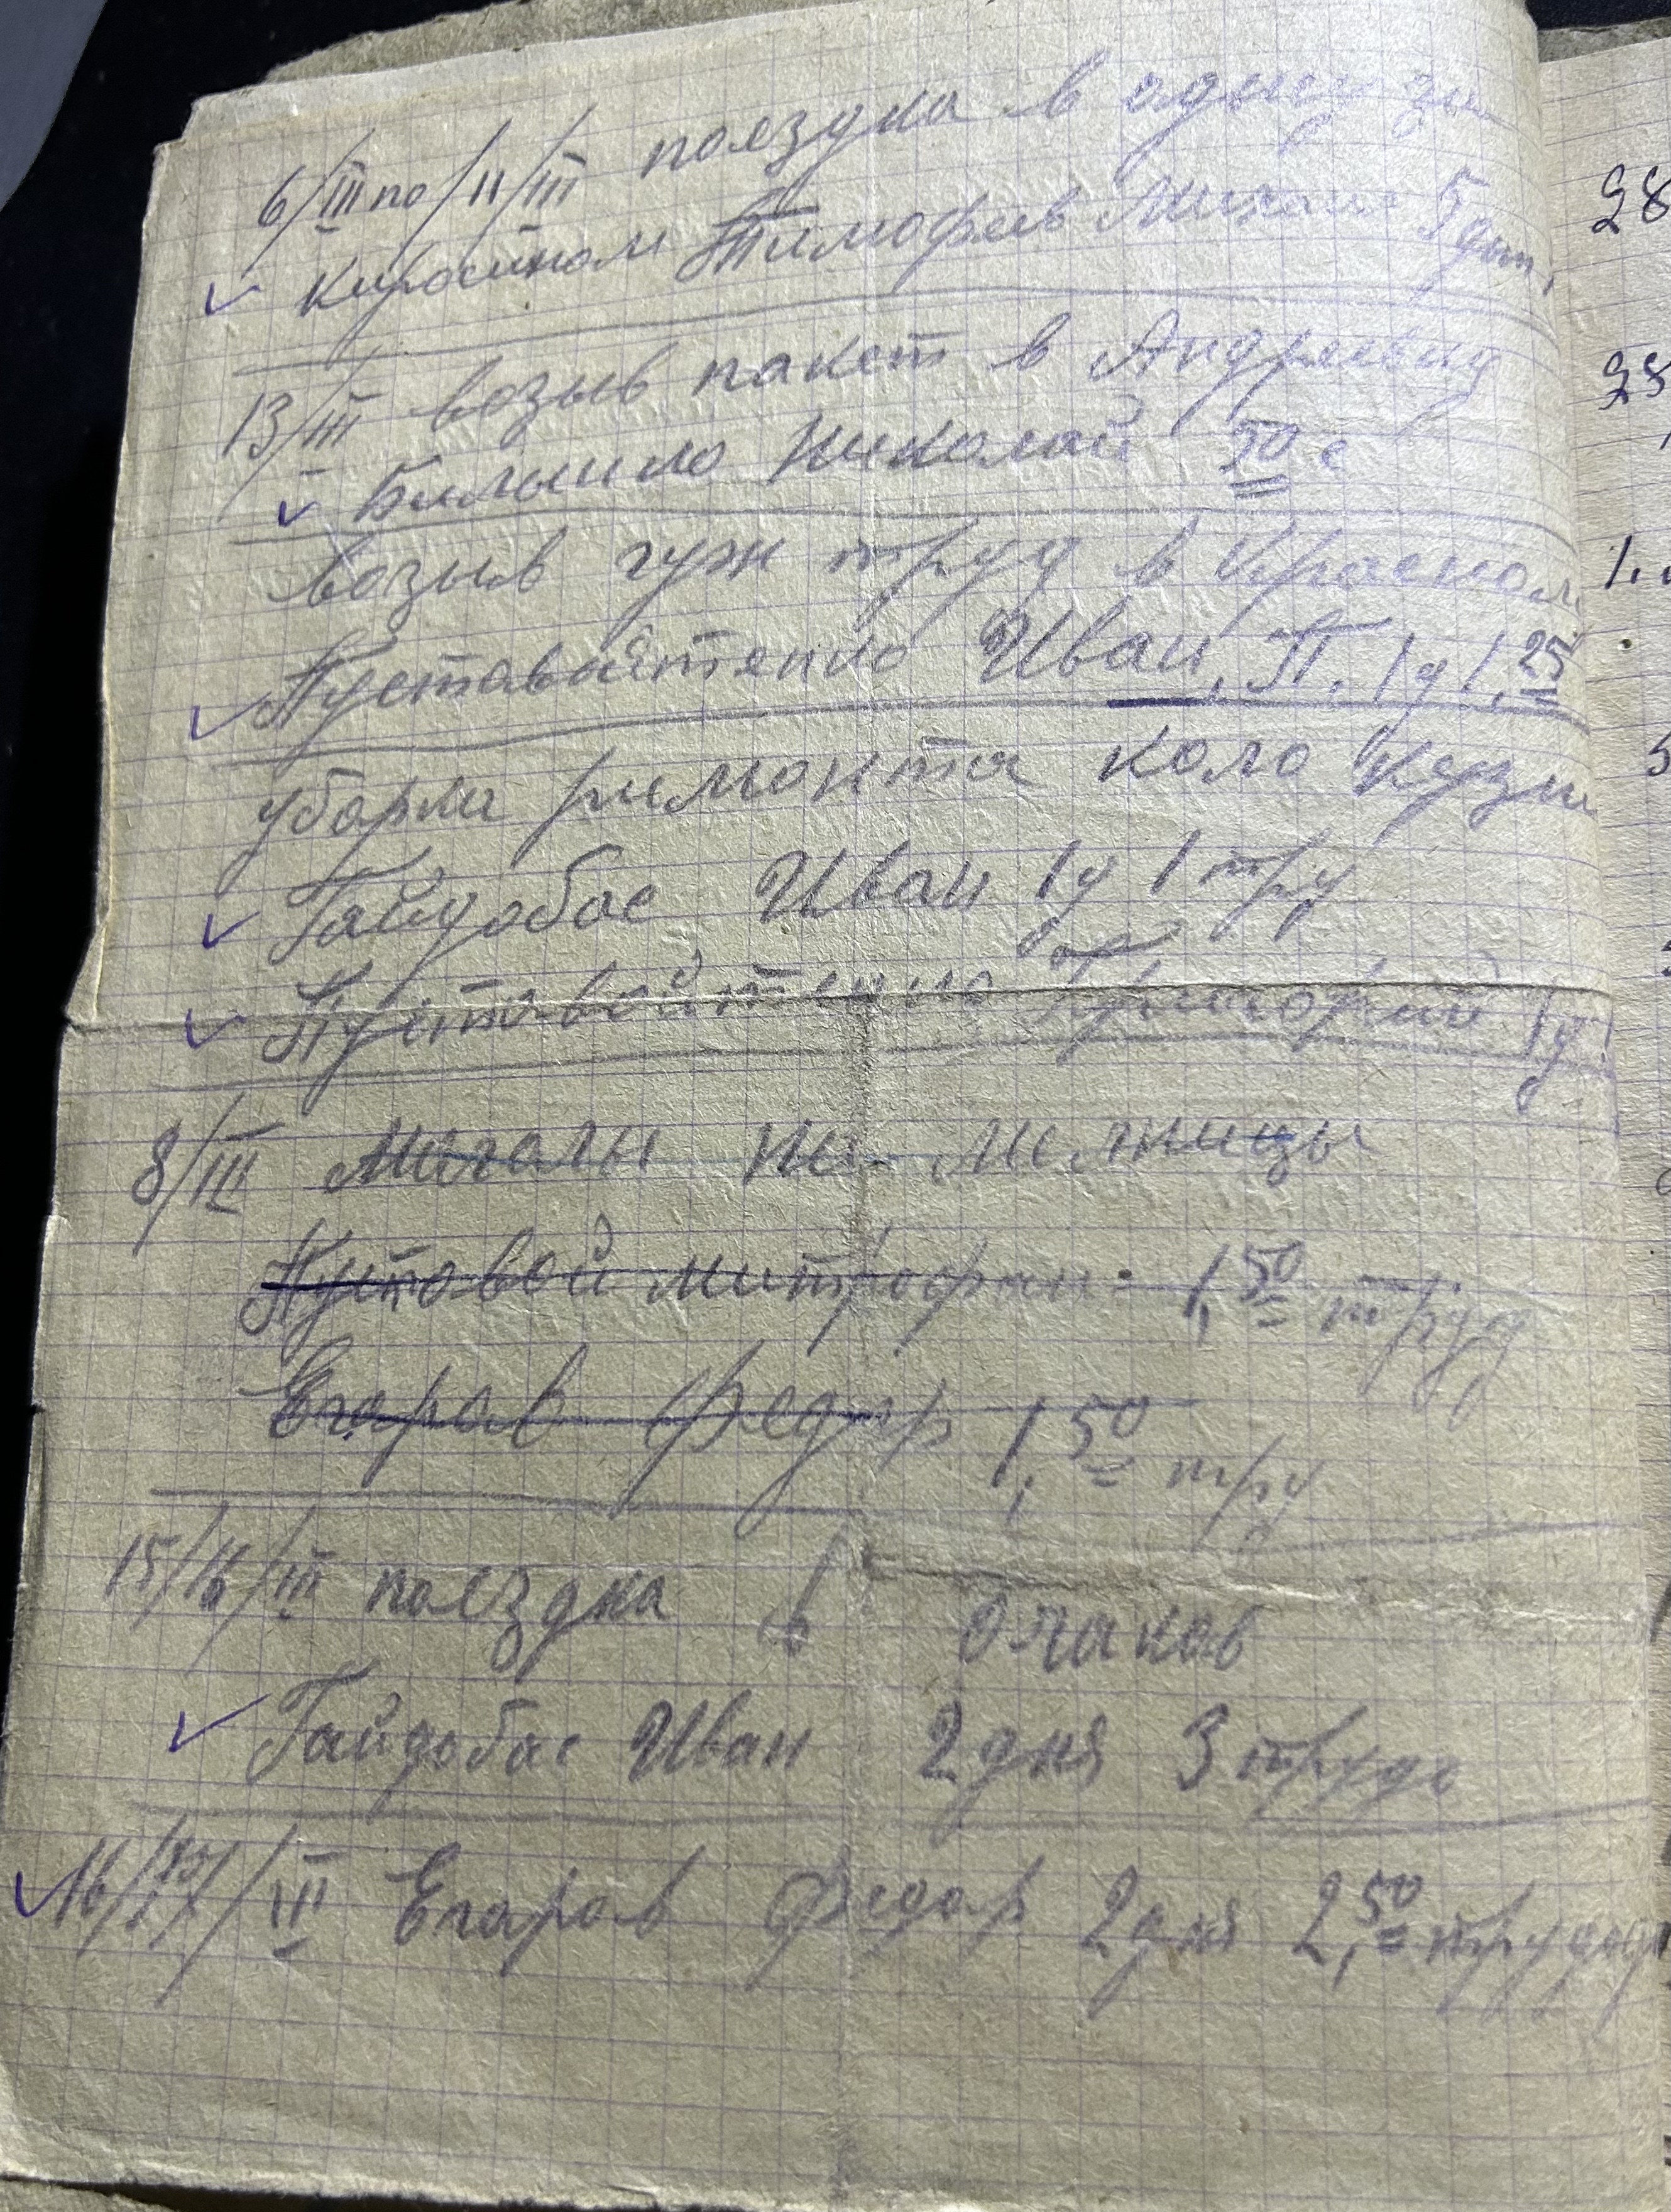 6/III по/11/III поездка в одессу за
✓ киросином Тимофеев Михаил 5 дн
13/III возыв пакет в Андреевку
✓ Билыило Николай 50 с
возыв гуж труд в Красном
✓ Пуставойтенко Иван. П. 1д 1.25
уборка римонта коло кузни
✓ Гайдобас Иван 1д 1 тру
✓ Пуставойтенко Тримофий 1д
8/III Магалы на мелницы
Пустовой митрофан 1,50 труд
Егаров Федор 1,50 тру
15/16/III поездка в Очаков
✓ Гайдобас Иван 2 дня 3 труда
✓ 16/17/III Егаров Федор 2 дня 2,50 трудод
28
28
1.